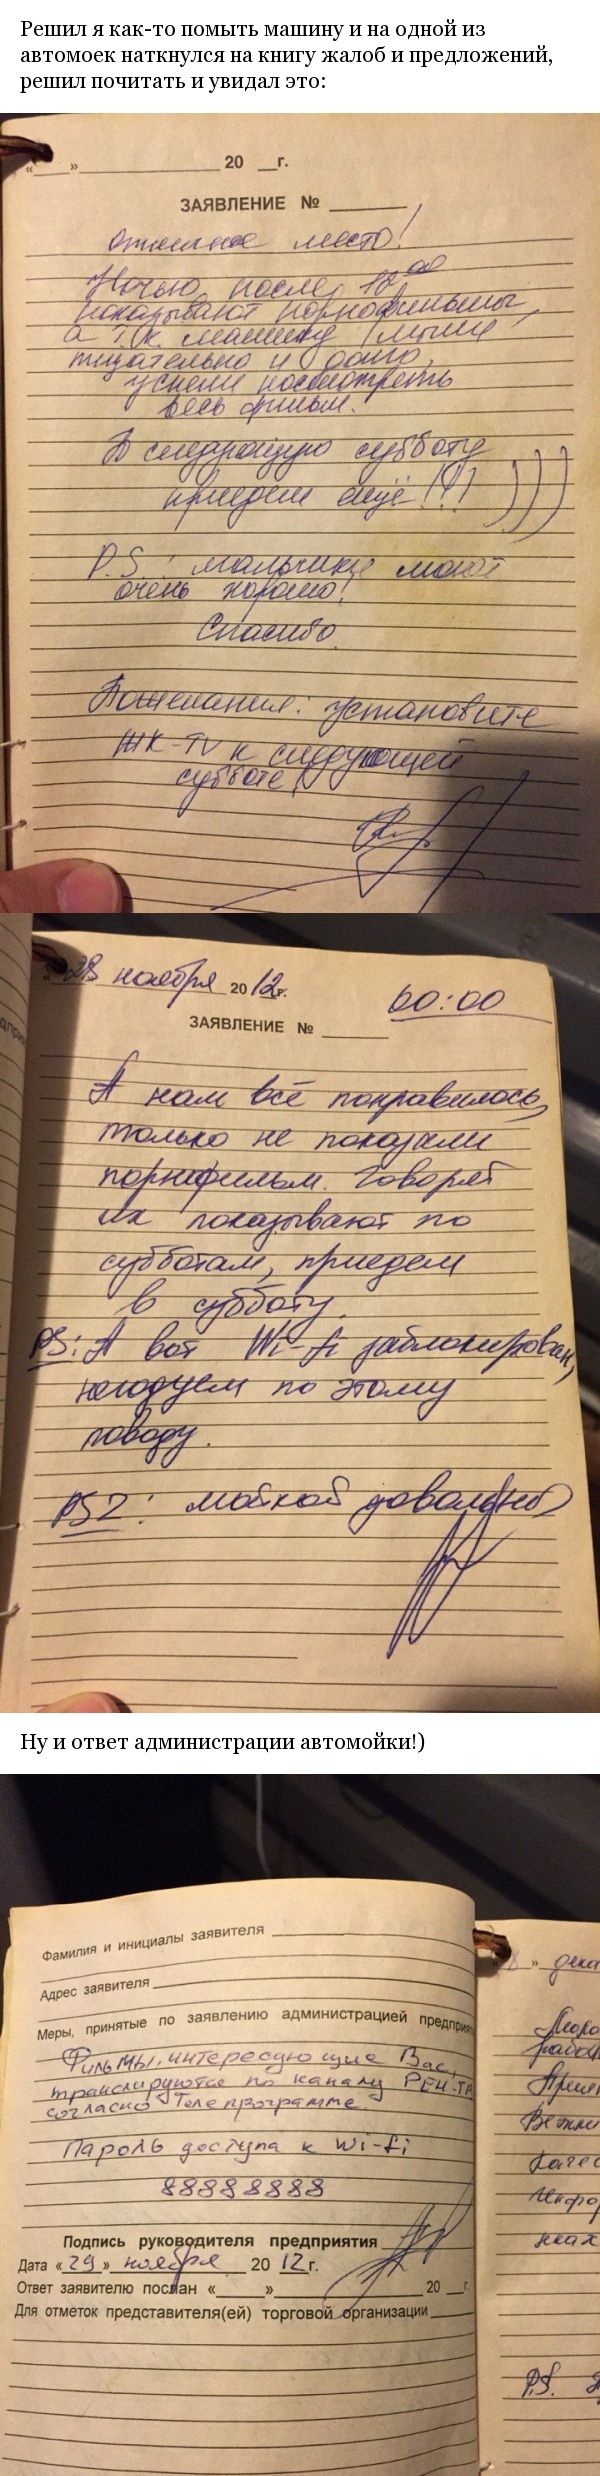 Решил я как-то помыть машину и на одной из
автомоек наткнулся на книгу жалоб и предложений,
решил почитать и увидал это:
«___» ____________ 20 __г.
ЗАЯВЛЕНИЕ № ______
Отличное место!
Ночью, после 18 00
показывают порнофильмы,
а т.к. машину мыли
тщательно и долго,
успели посмотреть
весь фильм.
В следующую субботу
приедем ещё!!! )))
P.S.: мальчики моют
очень хорошо!
Спасибо.
Пожелания: установите
ЖК-TV к следующей
субботе!
«28 ноября 20 12г. 00:00
ЗАЯВЛЕНИЕ № ______
А нам всё понравилось,
только не показали
порнофильм. Говорят
их показывают по
субботам, приедем
в субботу.
PS: А вот Wi-fi заблокирован,
негодуем по этому
поводу.
PS2: мойкой довольны
Ну и ответ администрации автомойки!)
Фамилия и инициалы заявителя
Адрес заявителя
Меры, принятые по заявлению администрацией предприят
Фильмы, интересующие Вас,
транслируются по каналу РЕН-ТВ
согласно Телепрограмме.
Пароль доступа к Wi-fi
88888888
Подпись руководителя предприятия
Дата «29» ноября 20 12 г.
Ответ заявителю послан «____» ____________ 20 __г.
Для отметок представителя(ей) торговой организации
P.S.